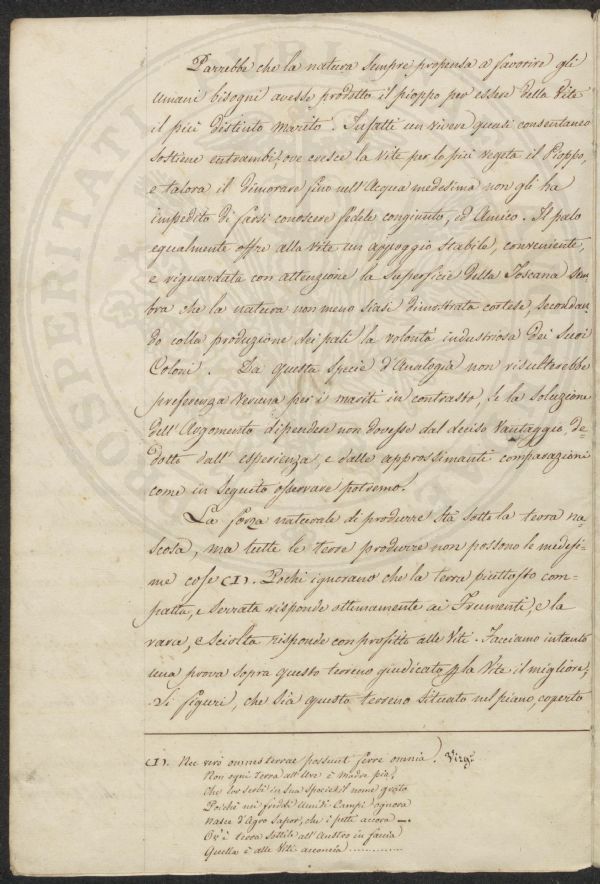 Parrebbe che la natura sempre propensa a favorire gli
umani bisogni avesse prodotto il pioppo per essere della Vite
il più distinto Marito. Infatti un vivere quasi consentaneo
sostiene entrambi, ove cresce la vite per lo più vegeta il Pioppo,
e talora il dimorare fino nell'Acqua medesima non gli ha
impedito di farsi conoscere fedele congiunto, ed Amico. Il palo
egualmente offre alla vite un appoggio stabile, conveniente,
e riguardata con attenzione la Superficie della Toscana Sem-
bra che la natura non meno siasi dimostrata cortese, secondan-
do colla produzione dei pali la volontà industriosa dei Suoi
Coloni. Da questa specie d'Analogia non risulterebbe
preferenza veruna per i mariti in contrasto, se la soluzione
dell'Argomento dipendere non dovesse dal deciso Vantaggio, de-
dotto dall'esperienza, e dalle approssimanti comparazioni
come in Seguito osservare potremo.
La forza naturale di produrre stà sotto la terra na-
scosa, ma tutte le terre produrre non possono le medesi-
me cose (1). Pochi ignorano che la terra piuttosto com-
patta, e Serrata risponde ottimamente ai Frumenti, e la
rara, e Sciolta risponde con profitto alle Viti. Facciamo intanto
una prova sopra questo terreno giudicato p la Vite il migliore;
Si figuri, che sia questo terreno Situato nel piano, coperto
(1). Nec verò omnes terrae possunt ferre omnia. Virg.
Non ogni terra all'Uve è madre pia,
Che lor serbi in sua specie il nome grato
Poichè nei freddi Umidi Campi ognora
Nasce d'Agro Sapor, che i petti accora —.
Ov'è terra Sottile all'Austro in faccia
Quella è alle Viti acconcia ..............
PROSPERITATI
PUBLI